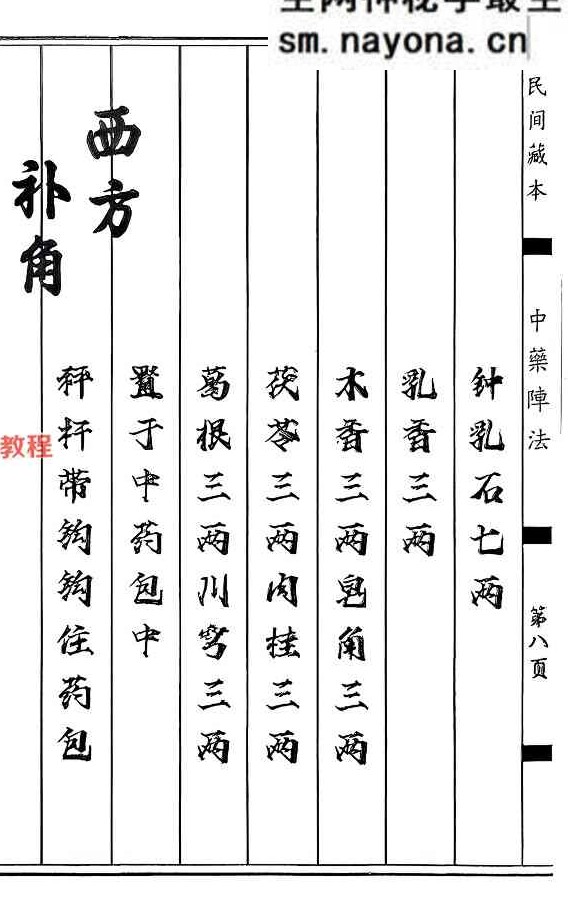 sm.nayona.cn
民间藏本
中藥陣法
第八頁
钟乳石七两
乳香三两
木香三两皂角三两
茯苓三两肉桂三两
葛根三两川穹三两
置于中药包中
西方
秤杆带钩钩住药包
补角
教程